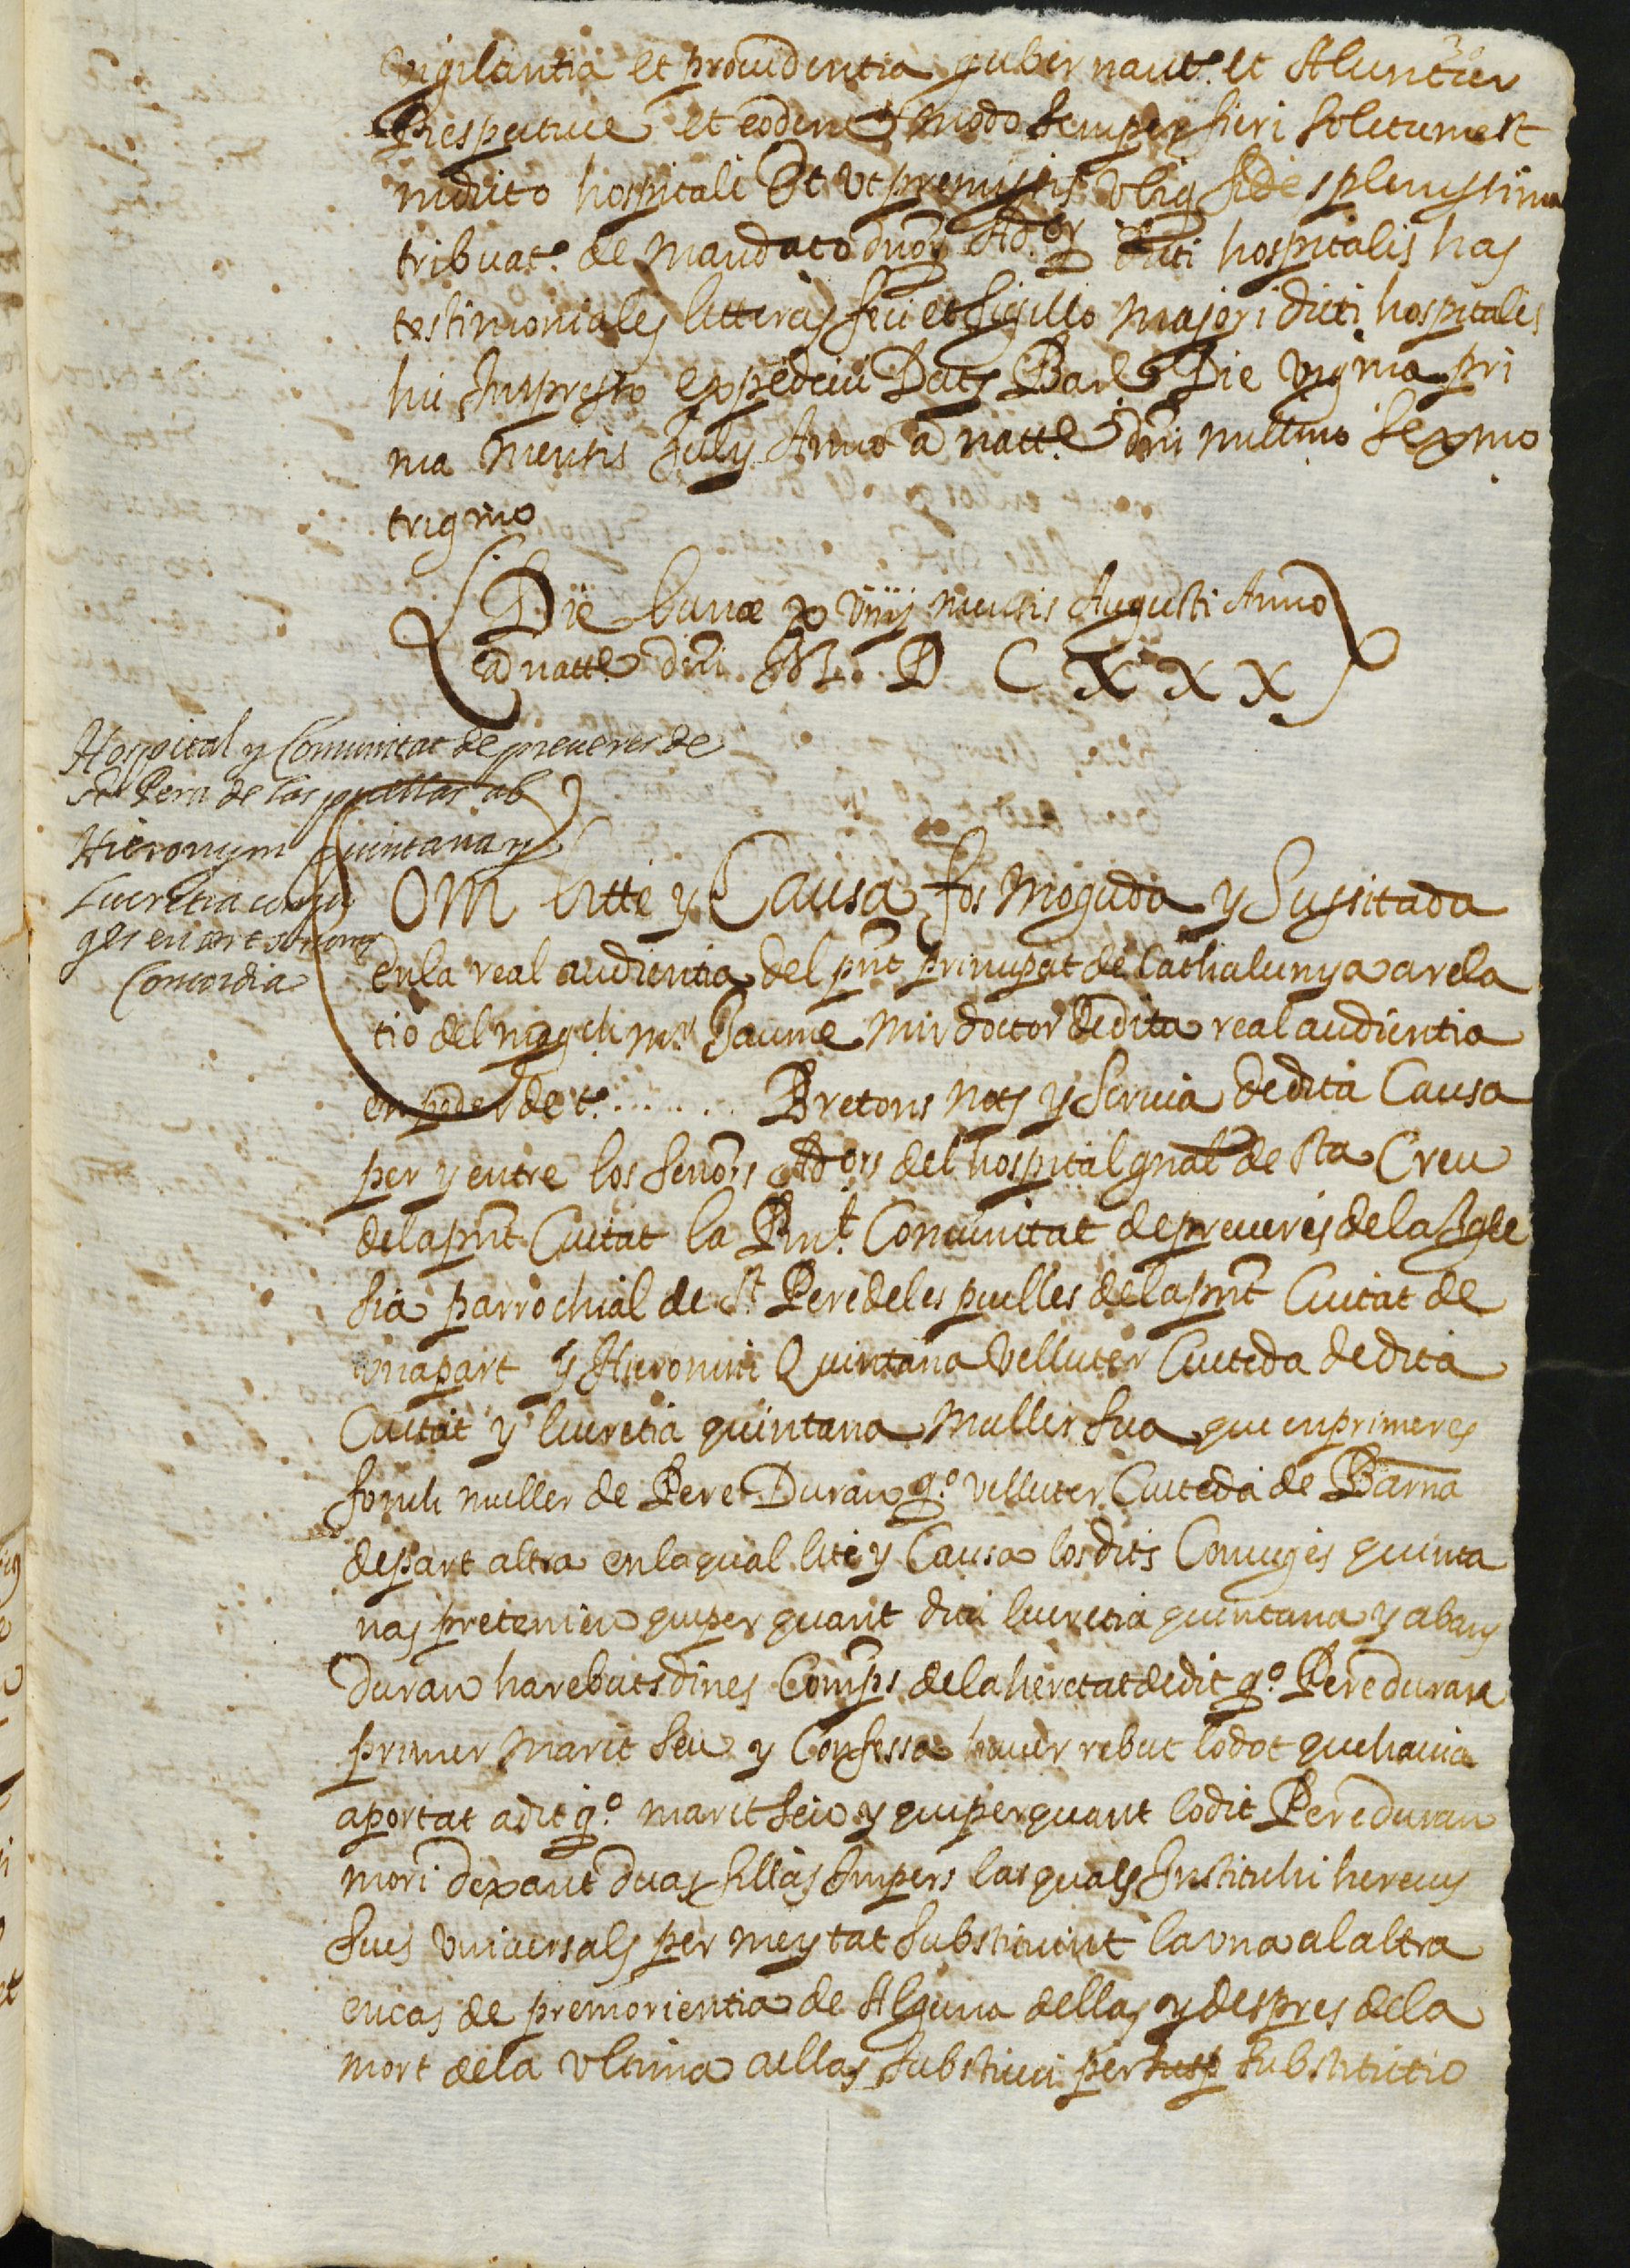 vigilantia et prouidentia gubernant.r et Aluntur
Respectiue et eodem modo semper fieri solitum est
in dicto hospitali Et vt premissis vbiq fides plenissima
tribuat.r de mandato dnoȝ Ad.orȝ dicti hospitalis has
testimoniales litteras feci et sigillo majori dicti hospitalis
hic Impresso expediui Datȝ Bar.e Die vigma pri
ma mensis Julij Anno a natt.e dni millmo sexmo
trigmo
Die lunæ x viiij mensis Augusti Anno
a natt.e dni M. D C X X X
Hospital y Comunitat de preueres de
St Pera de las puellas ab
Hieronym Quintana y
Lucretia conju
ges en cert
Concordia
COM litte y Causa fos moguda y Sussitada
en la real audientia del pnt principat de Cathalunya a rela
tio del magch mr. Jaume Mir doctor de dita real audientia
en poder de t.o ...... Bretons notȝ y scriua de dita Causa
per y entre los senors Ad.ors del hospital gnal de sta Creu
de la pnt Ciutat la Rnt. Comunitat de preueres de la Igle
sia parrochial de St. Pere de les puelles de la pnt Ciutat de
vna part y Hieronim Quintana velluter Ciuteda de dita
Ciutat y lucretia quintana Muller sua que en primeres
fonch muller de Pere Duran q.o velluter Ciuteda de Barna
de part altra en la qual lite y Causa los dits Conuges quinta
nas pretenien que per quant dita lucretia quintana y abans
Duran ha rebuts dines Comps de la heretat de dit q.o Pere duran
primer marit seu y Confessa hauer rebut lo dot que hauia
aportat a dit q.o marit seu y que per quant lo dit Pere duran
mori dexant duas fillas Impers las quals Instituhi hereus
sues vniuersals per meytat substituint la vna a la altra
en cas de premorientia de Alguna dellas y despres de la
mort de la vltima a ellas substitui per susp substitutio